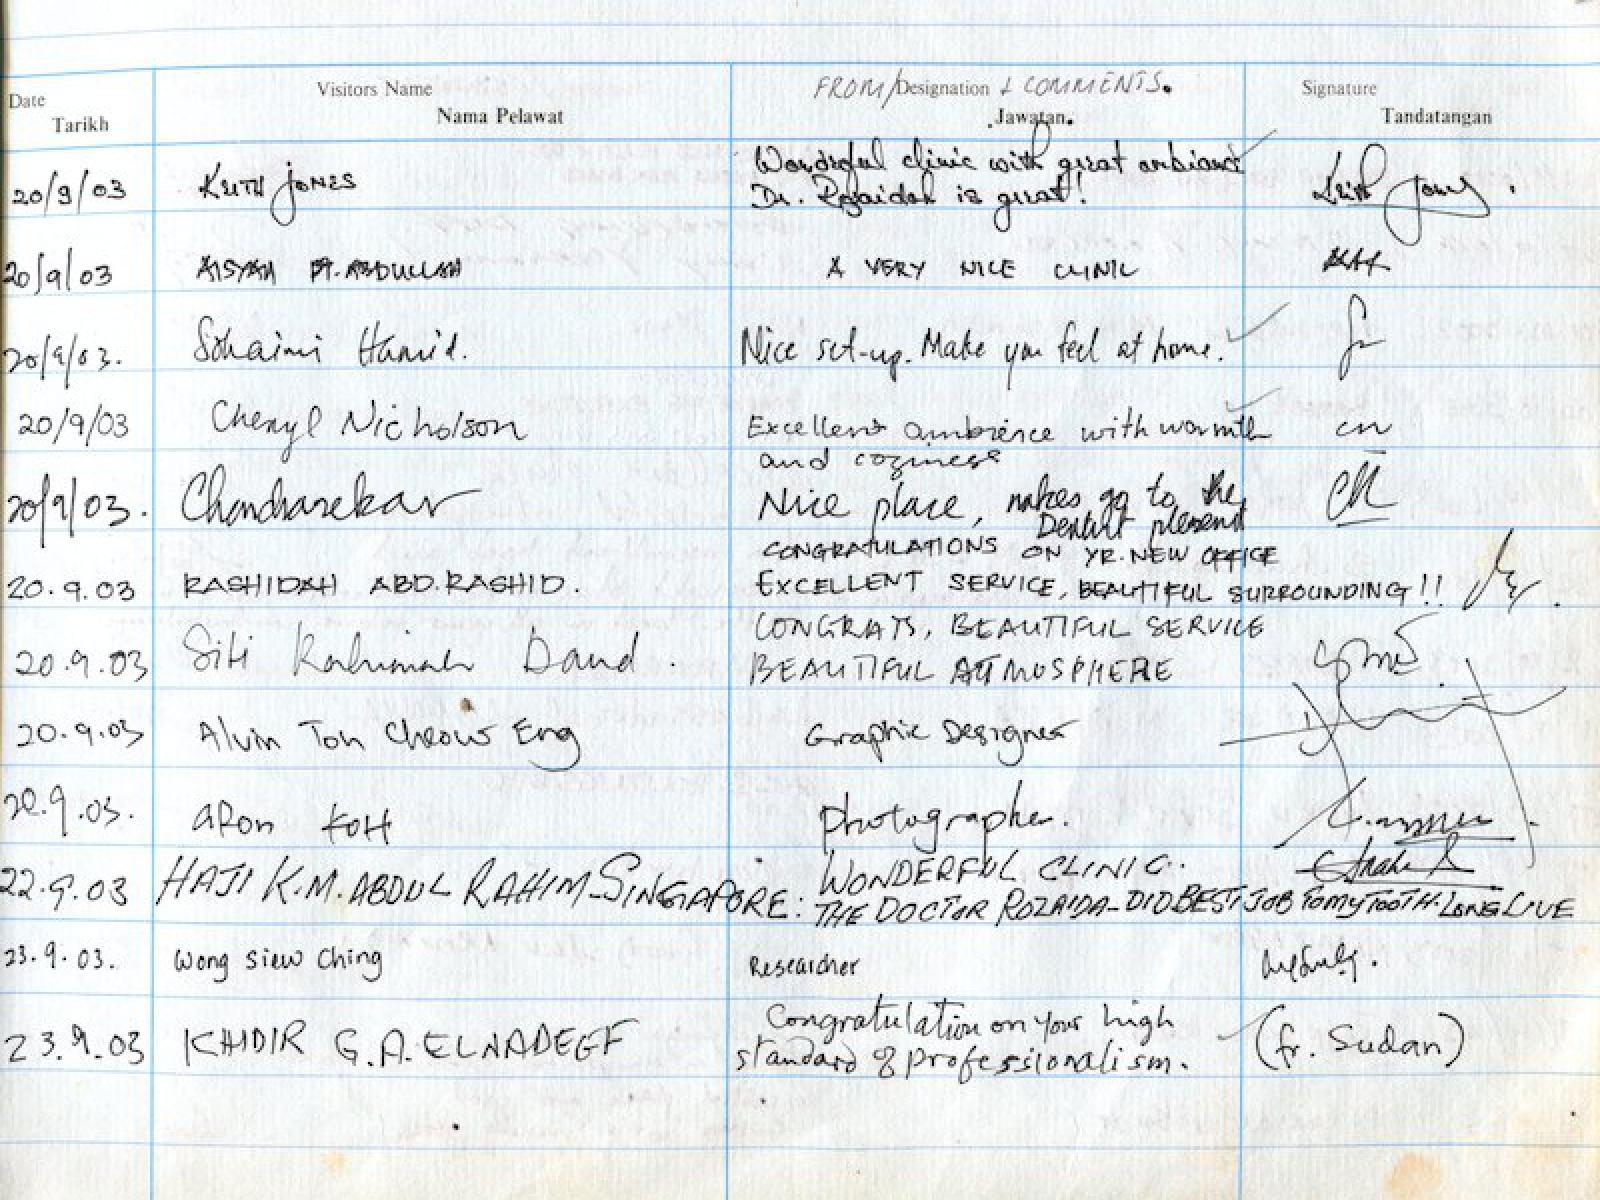 Date Visitors Name FROM/Designation & COMMENTS. Signature
Tarikh Nama Pelawat Jawatan. Tandatangan
Wonderful clinic with great ambiant
20/9/03 KEITH JONES Dr. Rozaidah is great! Keith Jones
20/9/03 AISYAH BT. ABDULLAH A VERY NICE CLINIC
20/9/03. Sohaimi Hamid. Nice set-up. Make you feel at home.
20/9/03 Cheryl Nicholson Excellent ambience with warmth CN
and coziness
20/9/03. Chandrasekar Nice place, makes go to the
Dentist plesend
CONGRATULATIONS ON YR. NEW OFFICE
20.9.03 RASHIDAH ABD. RASHID. EXCELLENT SERVICE, BEAUTIFUL SURROUNDING!!
CONGRATS, BEAUTIFUL SERVICE
20.9.03 Siti Rahimah Daud. BEAUTIFUL ATTMOSPHERE
20.9.03 Alvin Ton Cheow Eng Graphic Designer
22.9.03. aRon KOH photographer.
WONDERFUL CLINIC.
22.9.03 HAJI K.M. ABDUL RAHIM-SINGAPORE: THE DOCTOR ROZAIDA-DID BEST JOB TO MY TOOTH. LONG LIVE
23.9.03. Wong Siew Ching Researcher
Congratulation on your high
23.9.03 KHIDIR G.A. ELNADEEF standard of professionalism. (fr. Sudan)